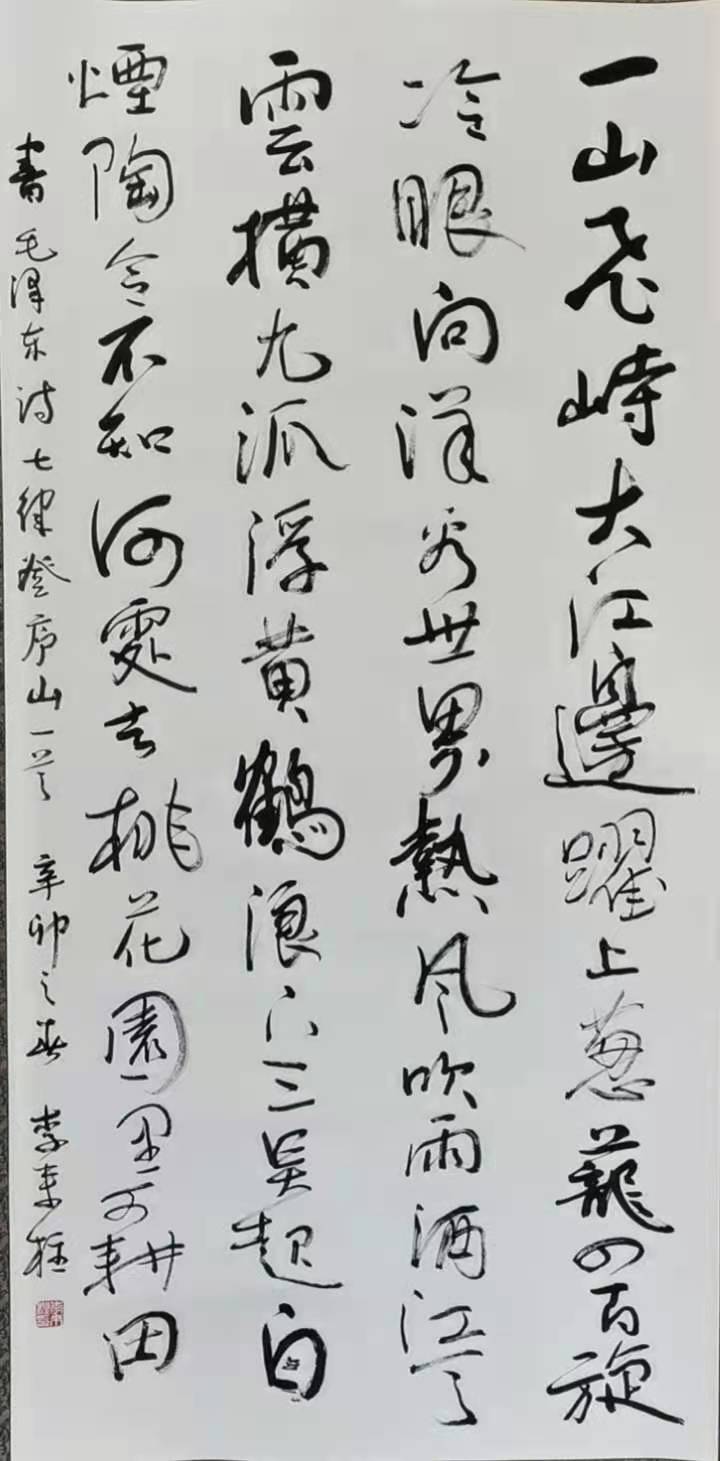 一山飞峙大江邊躍上葱蘢四百旋
冷眼向洋看世界熱風吹雨洒江天
雲横九派浮黄鶴浪下三吴起白
煙陶令不知何處去桃花園里可耕田
書毛泽东诗七律登庐山一首 辛卯之春 李来柱